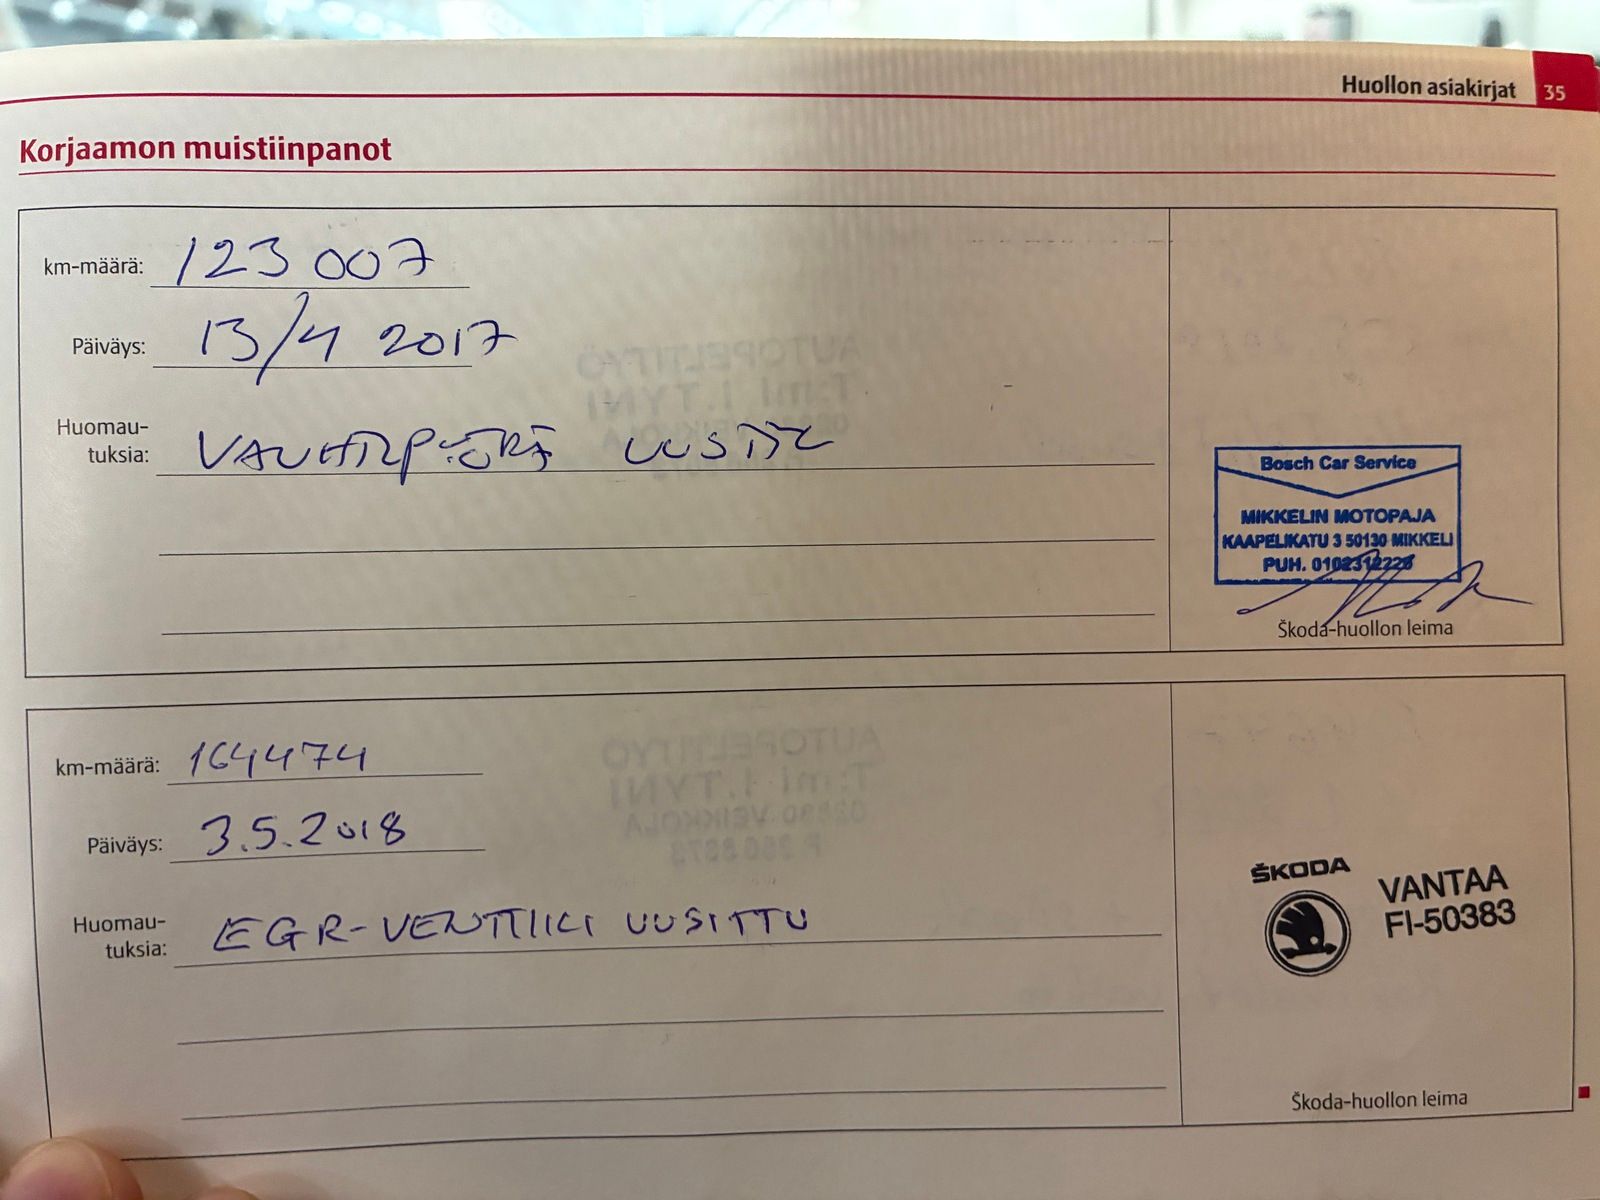 Huollon asiakirjat 35
Korjaamon muistiinpanot
km-määrä: 123 007
Päiväys: 13/4 2017
Huomau-
tuksia: VAUHTIPYÖRÄ UUSITTU
Bosch Car Service
MIKKELIN MOTOPAJA
KAAPELIKATU 3 50130 MIKKELI
PUH. 0102312226
Škoda-huollon leima
km-määrä: 164474
Päiväys: 3.5.2018
Huomau-
tuksia: EGR-VENTTIILI UUSITTU
ŠKODA
VANTAA
FI-50383
Škoda-huollon leima